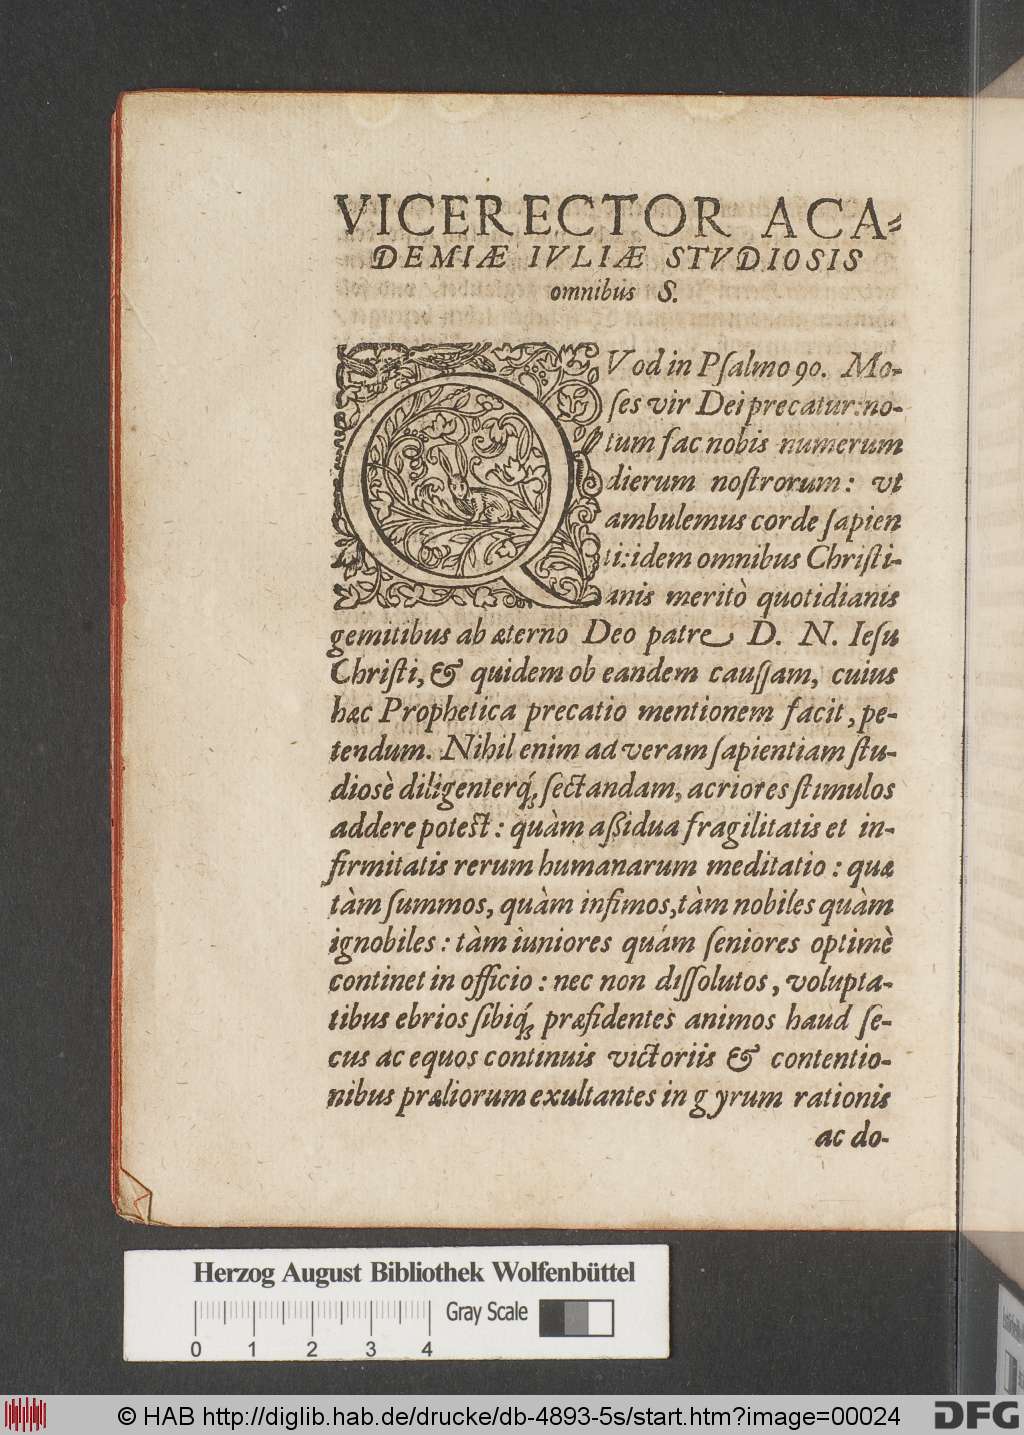 VICERECTOR ACA-
DEMIÆ IVLIÆ STVDIOSIS
omnibus S.
QVod in Psalmo 90. Mo-
ſes vir Dei precatur: no-
tum fac nobis numerum
dierum noſtrorum: vt
ambulemus corde ſapien
ti: idem omnibus Chriſti-
anis meritò quotidianis
gemitibus ab æterno Deo patre D. N. Ieſu
Chriſti, & quidem ob eandem cauſſam, cuius
hæc Prophetica precatio mentionem facit, pe-
tendum. Nihil enim ad veram ſapientiam ſtu-
dioſè diligenterq́ꝫ ſectandam, acriores ſtimulos
addere poteſt: quàm aßidua fragilitatis et in-
firmitatis rerum humanarum meditatio: quæ
tàm ſummos, quàm infimos, tàm nobiles quàm
ignobiles: tàm iuniores quám ſeniores optimè
continet in officio: nec non diſſolutos, volupta-
tibus ebrios ſibiq́ꝫ præfidentes animos haud ſe-
cus ac equos continuis victoriis & contentio-
nibus præliorum exultantes in gyrum rationis
ac do-
Herzog August Bibliothek Wolfenbüttel
Gray Scale
0 1 2 3 4
© HAB http://diglib.hab.de/drucke/db-4893-5s/start.htm?image=00024
DFG